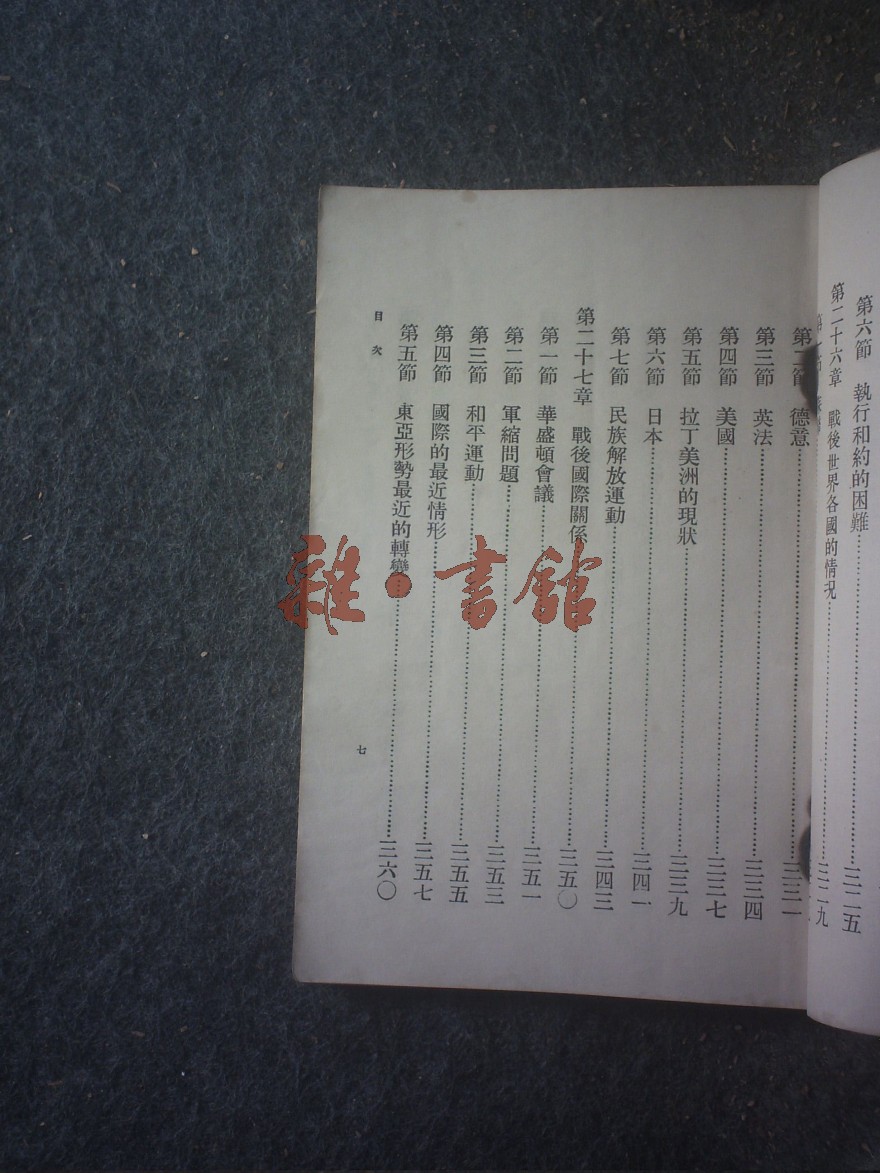 第六節 執行和約的困難……三二五
第二十六章 戰後世界各國的情況……三二九
德意……三三一
第三節 英法……三三四
第四節 美國……三三七
第五節 拉丁美洲的現狀……三三九
第六節 日本……三四一
第七節 民族解放運動……三四三
第二十七章 戰後國際關係……三五〇
第一節 華盛頓會議……三五一
第二節 軍縮問題……三五三
第三節 和平運動……三五五
第四節 國際的最近情形……三五七
第五節 東亞形勢最近的轉變……三六〇
目次
七
雜·書館